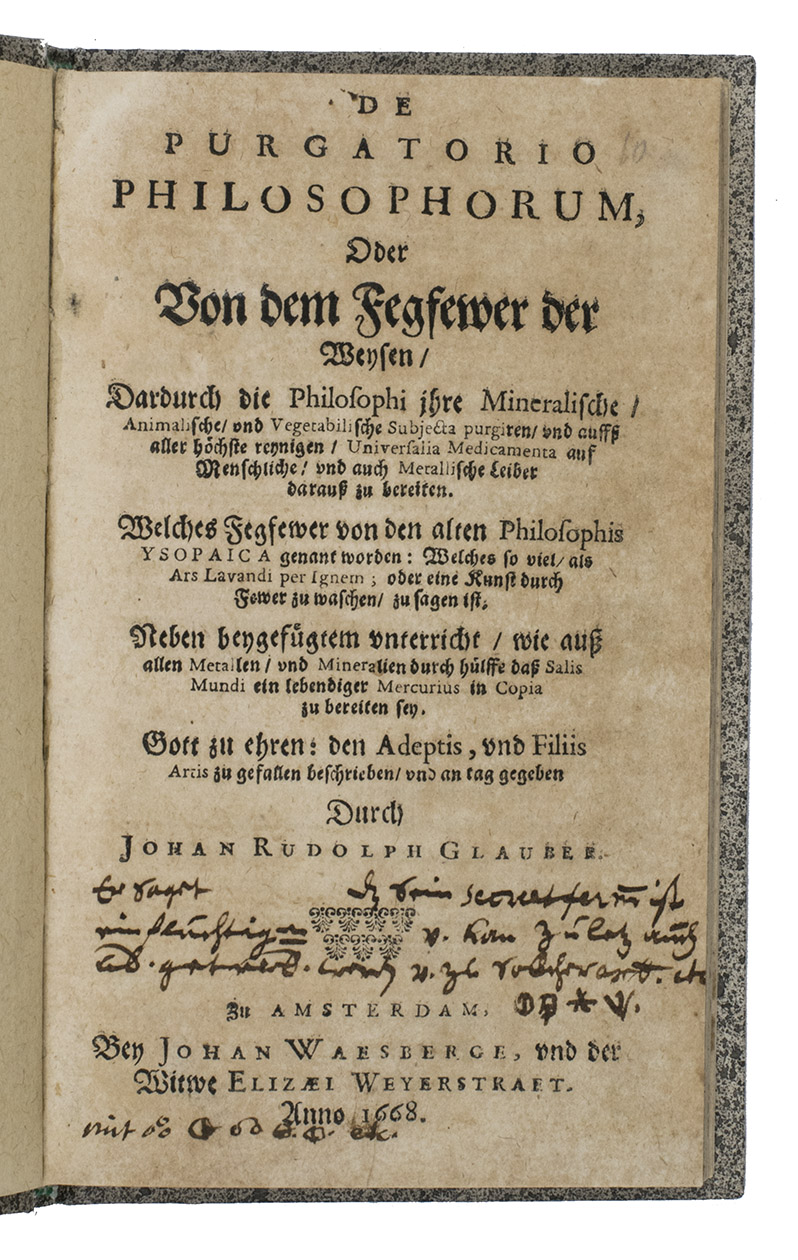 DE
PURGATORIO
PHILOSOPHORUM,
Oder
Von dem Fegfewer der
Weysen /
Dardurch die Philoſophi jhre Mineraliſche /
Animaliſche / vnd Vegetabiliſche Subjecta purgiren / vnd auffs
aller höchſte reynigen / Univerſalia Medicamenta auf
Menſchliche / vnd auch Metalliſche Leiber
darauß zu bereiten.
Welches Fegfewer von den alten Philoſophis
YSOPAICA genant worden: Welches so viel / als
Ars Lavandi per Ignem; oder eine Kunſt durch
Fewer zu waſchen / zu ſagen iſt.
Neben beygefügtem vnterricht / wie auß
allen Metallen / vnd Mineralien durch hülffe daß Salis
Mundi ein lebendiger Mercurius in Copia
zu bereiten ſey.
Gott zu ehren: den Adeptis, vnd Filiis
Artis zu gefallen beſchrieben / vnd an tag gegeben
Durch
JOHAN RUDOLPH GLAUBER.
Er saget ist
v. kan
Zu AMSTERDAM,
Bey JOHAN WAESBERGE, vnd der
Witwe ELIZÆI WEYERSTRAET.
Anno 1668.
mit